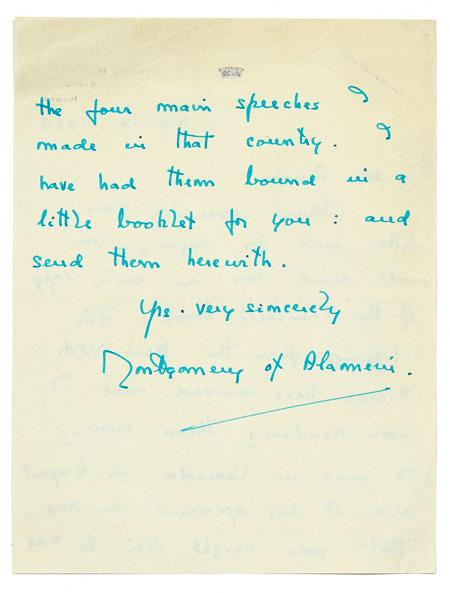 the four main speeches I
made in that country. I
have had them bound in a
little booklet for you : and
send them herewith.
Yrs. very sincerely
Montgomery of Alamein.